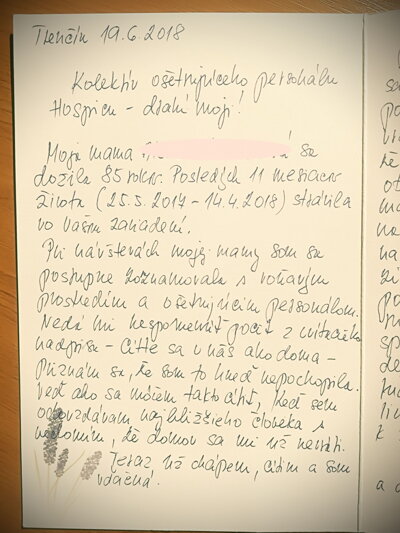 Trenčín 19.6.2018
Kolektív ošetrujúceho personálu
Hospicu - drahí moji!
Moja mama sa
dožila 85 rokov. Posledných 11 mesiacov
života (25.5.2017 - 14.4.2018) strávila
vo Vašom zariadení.
Pri návštevách mojej mamy som sa
postupne zoznamovala s voňavým
prostredím a ošetrujúcim personálom.
Nedá mi nespomenúť pocit z uvítacieho
nadpisu - Cíťte sa u nás ako doma -
Priznám sa, že som to hneď nepochopila.
Veď ako sa môžem takto cítiť, keď sem
odovzdávam najbližšieho človeka s
vedomím, že domov sa mi už nevráti.
Teraz už chápem, cítim a som
vďačná.